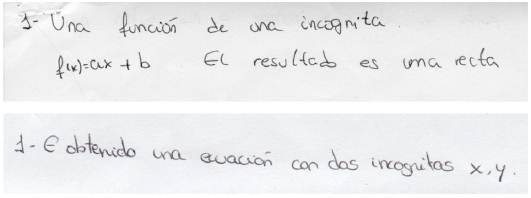 1- Una función de una incognita.
f(x)=ax + b El resultado es una recta
1- E obtenido una ecuación con dos incognitas x,y.